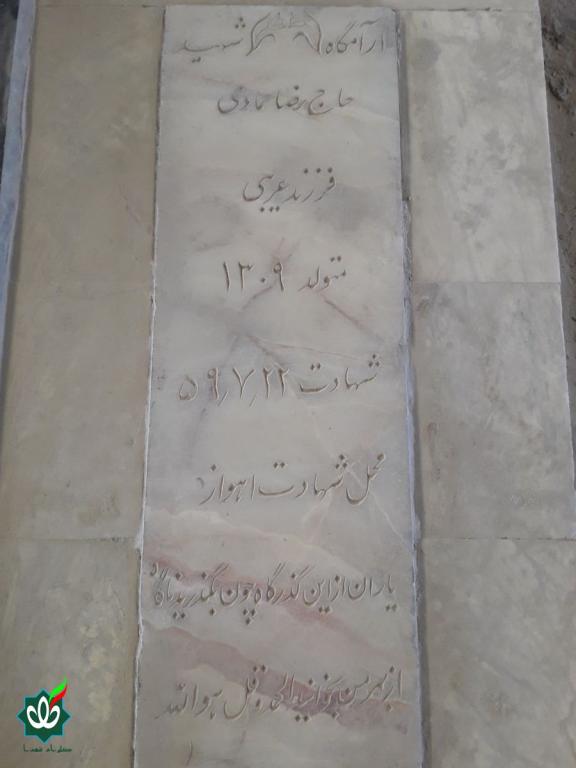 آرامگاه شهید
حاج رضا حمادی
فرزند عربی
متولد ۱۳۰۹
شهادت ۵۹٫۷٫۲۲
محل شهادت اهواز
یاران از این گذرگاه چون بگذرید ناگاه
از بهر من بخوانید الحمد و قل هو الله